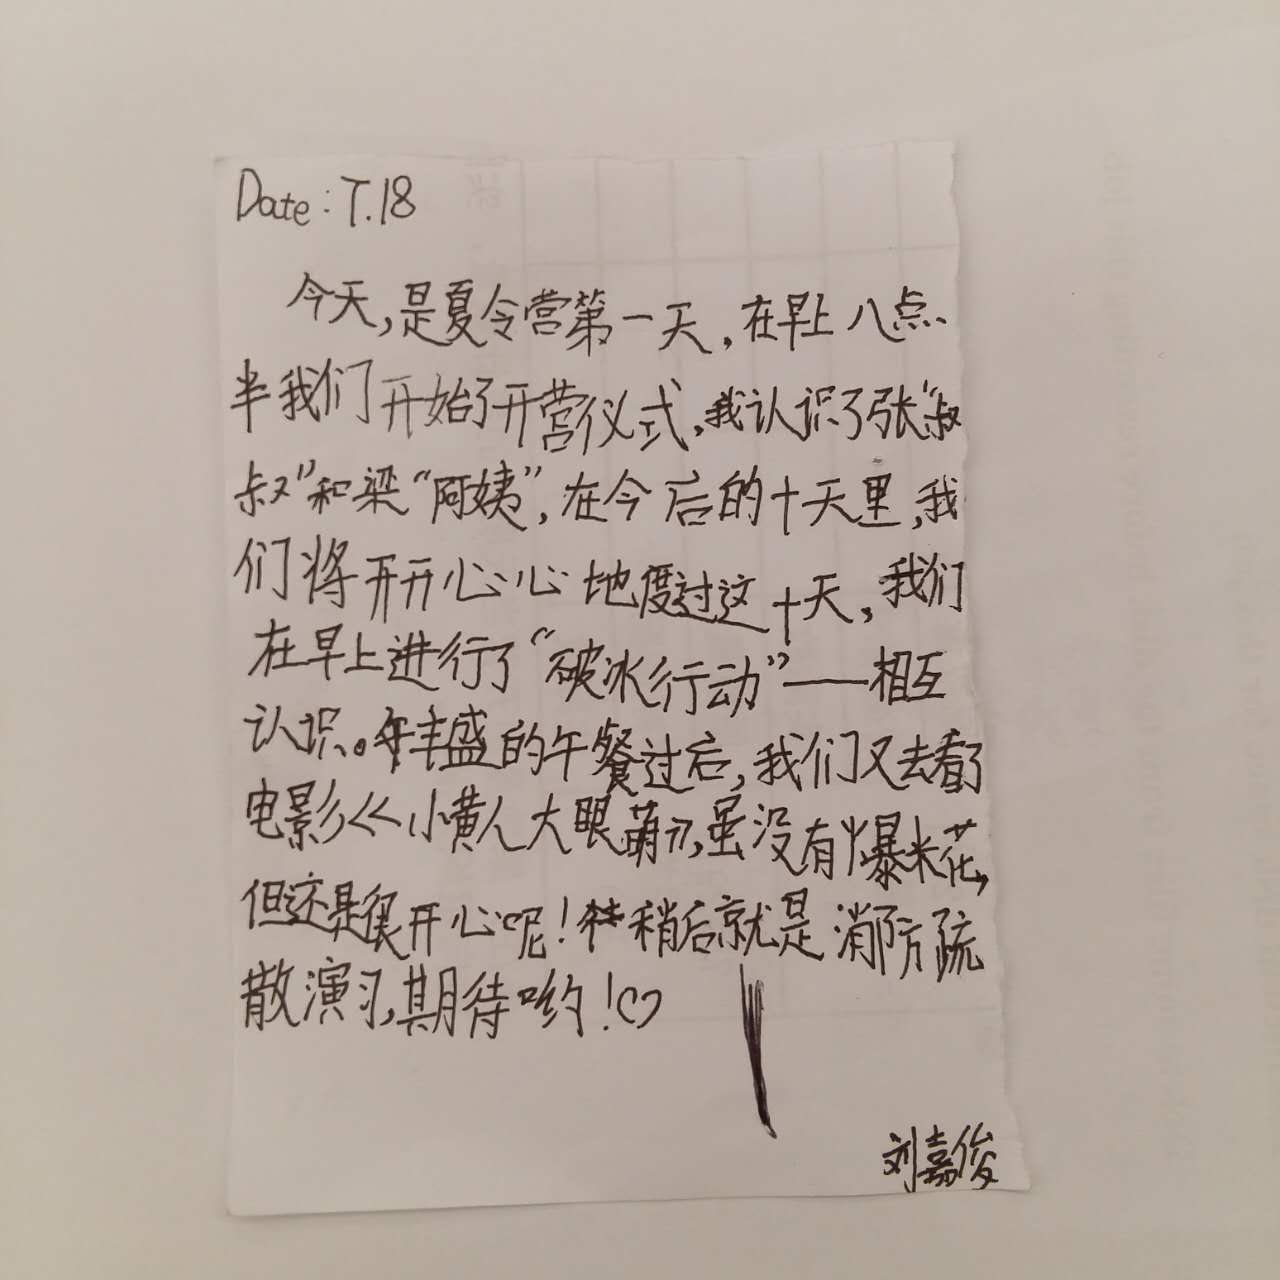 Date: 7.18
今天,是夏令营第一天,在早上八点
半我们开始了开营仪式,我认识了张“叔
叔”和梁“阿姨”,在今后的十天里,我
们将开开心心地度过这十天,我们
在早上进行了“破冰行动”——相互
认识。丰盛的午餐过后,我们又去看了
电影《小黄人大眼萌》,虽没有爆米花,
但还是很开心呢!稍后就是消防疏
散演习,期待哟!♡
刘嘉俊